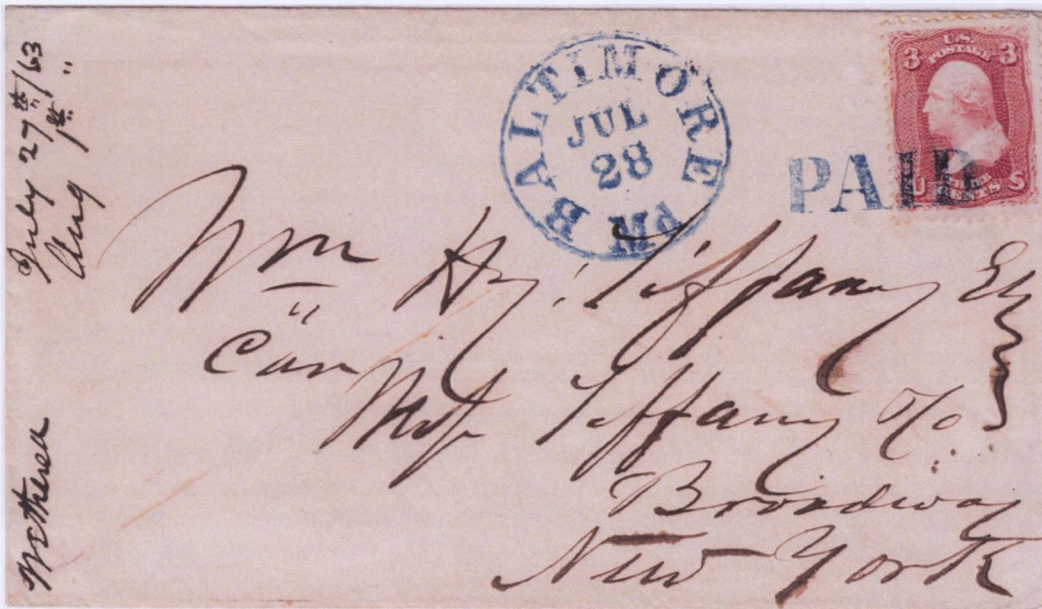 July 27th/63
Aug 1st "
Mother
BALTIMORE
JUL
28
PM
PAID
3 U.S. POSTAGE 3
U THREE CENTS S
Wm Hy. Tiffany Esq
Care
Tiffany & Co.
Broadway
New York